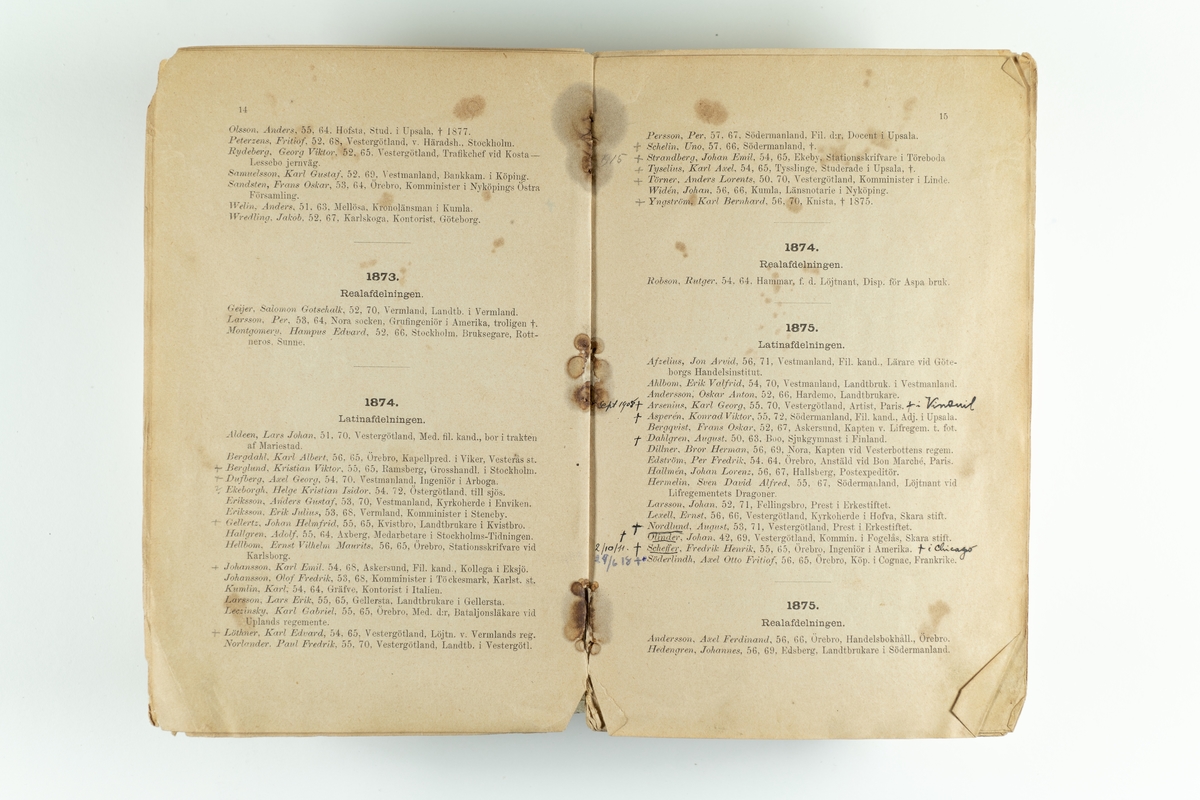 14
Olsson, Anders, 55, 64. Hofsta, Stud. i Upsala, † 1877.
Peterzens, Fritiof, 52, 68, Vestergötland, v. Häradsh., Stockholm.
Rydeberg, Georg Viktor, 52, 65, Vestergötland, Trafikchef vid Kosta—
Lessebo jernväg.
Samuelsson, Karl Gustaf, 52, 69, Vestmanland, Bankkam. i Köping.
Sandsten, Frans Oskar, 53, 64, Örebro, Komminister i Nyköpings Östra
Församling.
Welin, Anders, 51, 63, Mellösa, Kronolänsman i Kumla.
Wredling, Jakob, 52, 67, Karlskoga, Kontorist, Göteborg.
1873.
Realafdelningen.
Geijer, Salomon Gotschalk, 52, 70, Vermland, Landtb. i Vermland.
Larsson, Per, 53, 64, Nora socken, Grufingeniör i Amerika, troligen †.
Montgomery, Hampus Edvard, 52, 66, Stockholm, Bruksegare, Rott-
neros, Sunne.
1874.
Latinafdelningen.
Aldeen, Lars Johan, 51, 70, Vestergötland, Med. fil. kand., bor i trakten
af Mariestad.
Bergdahl, Karl Albert, 56, 65, Örebro, Kapellpred. i Viker, Vesterås st.
+ Berglund, Kristian Viktor, 55, 65, Ramsberg, Grosshandl. i Stockholm.
+ Dufberg, Axel Georg, 54, 70, Vestmanland, Ingeniör i Arboga.
+ Ekeborgh, Helge Kristian Isidor, 54, 72, Östergötland, till sjös.
Eriksson, Anders Gustaf, 53, 70, Vestmanland, Kyrkoherde i Enviken.
Eriksson, Erik Julius, 53, 68, Vermland, Komminister i Steneby.
+ Gellertz, Johan Helmfrid, 55, 65, Kvistbro, Landtbrukare i Kvistbro.
Hallgren, Adolf, 55, 64, Axberg, Medarbetare i Stockholms-Tidningen.
Hellbom, Ernst Vilhelm Maurits, 56, 65, Örebro, Stationsskrifvare vid
Karlsborg.
+ Johansson, Karl Emil, 54, 68, Askersund, Fil. kand., Kollega i Eksjö.
Johansson, Olof Fredrik, 53, 68, Komminister i Töckesmark, Karlst. st.
Kumlin, Karl, 54, 64, Gräfve, Kontorist i Italien.
Larsson, Lars Erik, 55, 65, Gellersta, Landtbrukare i Gellersta.
Leczinsky, Karl Gabriel, 55, 65, Örebro, Med. d:r, Bataljonsläkare vid
Uplands regemente.
+ Löthner, Karl Edvard, 54, 65, Vestergötland, Löjtn. v. Vermlands reg.
Norlander, Paul Fredrik, 55, 70, Vestergötland, Landtb. i Vestergötl.
15
Persson, Per, 57, 67, Södermanland, Fil. d:r, Docent i Upsala.
+ Schelin, Uno, 57, 66, Södermanland, †.
+ Strandberg, Johan Emil, 54, 65, Ekeby, Stationsskrifvare i Töreboda
+ Tyselius, Karl Axel, 54, 65, Tysslinge, Studerade i Upsala, †.
+ Törner, Anders Lorents, 50, 70, Vestergötland, Komminister i Linde.
Widén, Johan, 56, 66, Kumla, Länsnotarie i Nyköping.
+ Yngström, Karl Bernhard, 56, 70, Knista, † 1875.
1874.
Realafdelningen.
Robson, Rutger, 54, 64, Hammar, f. d. Löjtnant, Disp. för Aspa bruk.
1875.
Latinafdelningen.
Afzelius, Jon Arvid, 56, 71, Vestmanland, Fil. kand., Lärare vid Göte-
borgs Handelsinstitut.
Ahlbom, Erik Valfrid, 54, 70, Vestmanland, Landtbruk. i Vestmanland.
Andersson, Oskar Anton, 52, 66, Hardemo, Landtbrukare.
Sept 1908 † Arsenius, Karl Georg, 55, 70, Vestergötland, Artist, Paris. †
† Asperén, Konrad Viktor, 55, 72, Södermanland, Fil. kand., Adj. i Upsala.
Bergqvist, Frans Oskar, 52, 67, Askersund, Kapten v. Lifregem. t. fot.
† Dahlgren, August, 50, 63, Boo, Sjukgymnast i Finland.
Dillner, Bror Herman, 56, 69, Nora, Kapten vid Vesterbottens regem.
Edström, Per Fredrik, 54, 64, Örebro, Anstäld vid Bon Marché, Paris.
Hallmén, Johan Lorenz, 56, 67, Hallsberg, Postexpeditör.
Hermelin, Sven David Alfred, 55, 67, Södermanland, Löjtnant vid
Lifregementets Dragoner.
Larsson, Johan, 52, 71, Fellingsbro, Prest i Erkestiftet.
Lexell, Ernst, 56, 66, Vestergötland, Kyrkoherde i Hofva, Skara stift.
† Nordlund, August, 53, 71, Vestergötland, Prest i Erkestiftet.
† Olinder, Johan, 42, 69, Vestergötland, Kommin. i Fogelås, Skara stift.
2/10/11. † Scheffer, Fredrik Henrik, 55, 65, Örebro, Ingeniör i Amerika. † i Chicago
29/6 18 † Söderlindh, Axel Otto Fritiof, 56, 65, Örebro, Köp. i Cognac, Frankrike.
1875.
Realafdelningen.
Andersson, Axel Ferdinand, 56, 66, Örebro, Handelsbokhåll., Örebro.
Hedengren, Johannes, 56, 69, Edsberg, Landtbrukare i Södermanland.